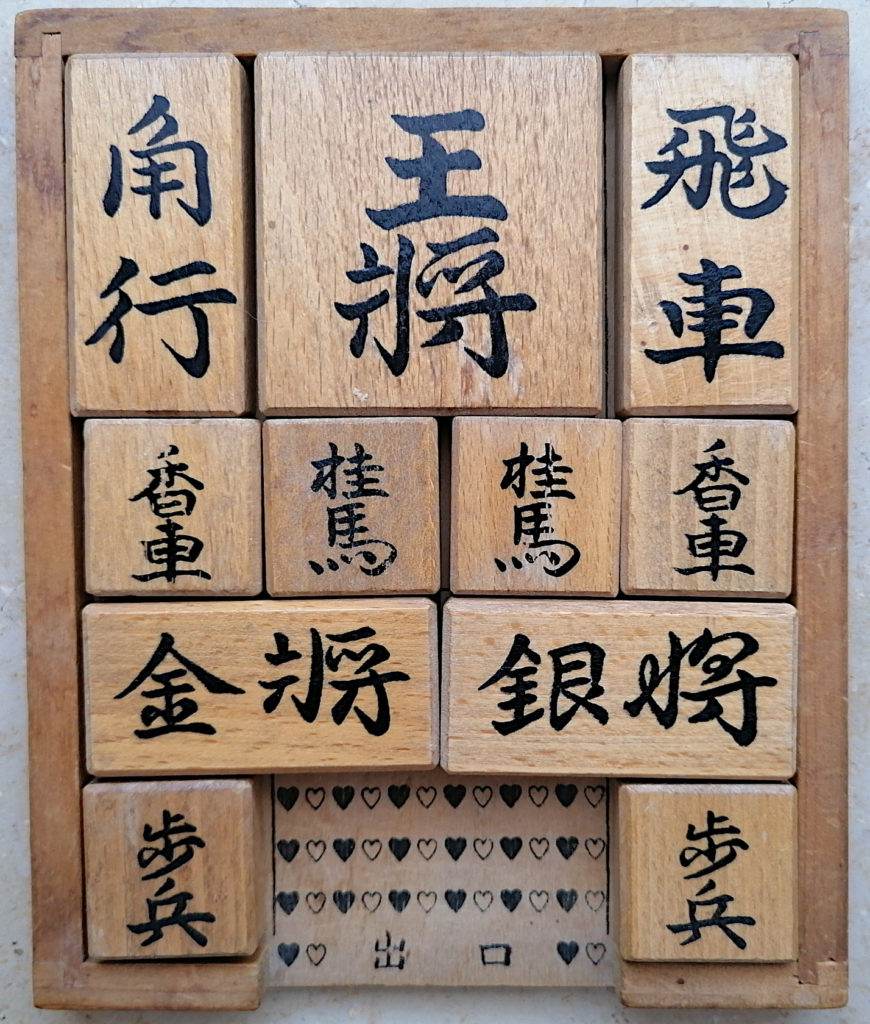 角行
王将
飛車
香車
桂馬
桂馬
香車
金将
銀将
歩兵
歩兵
出口